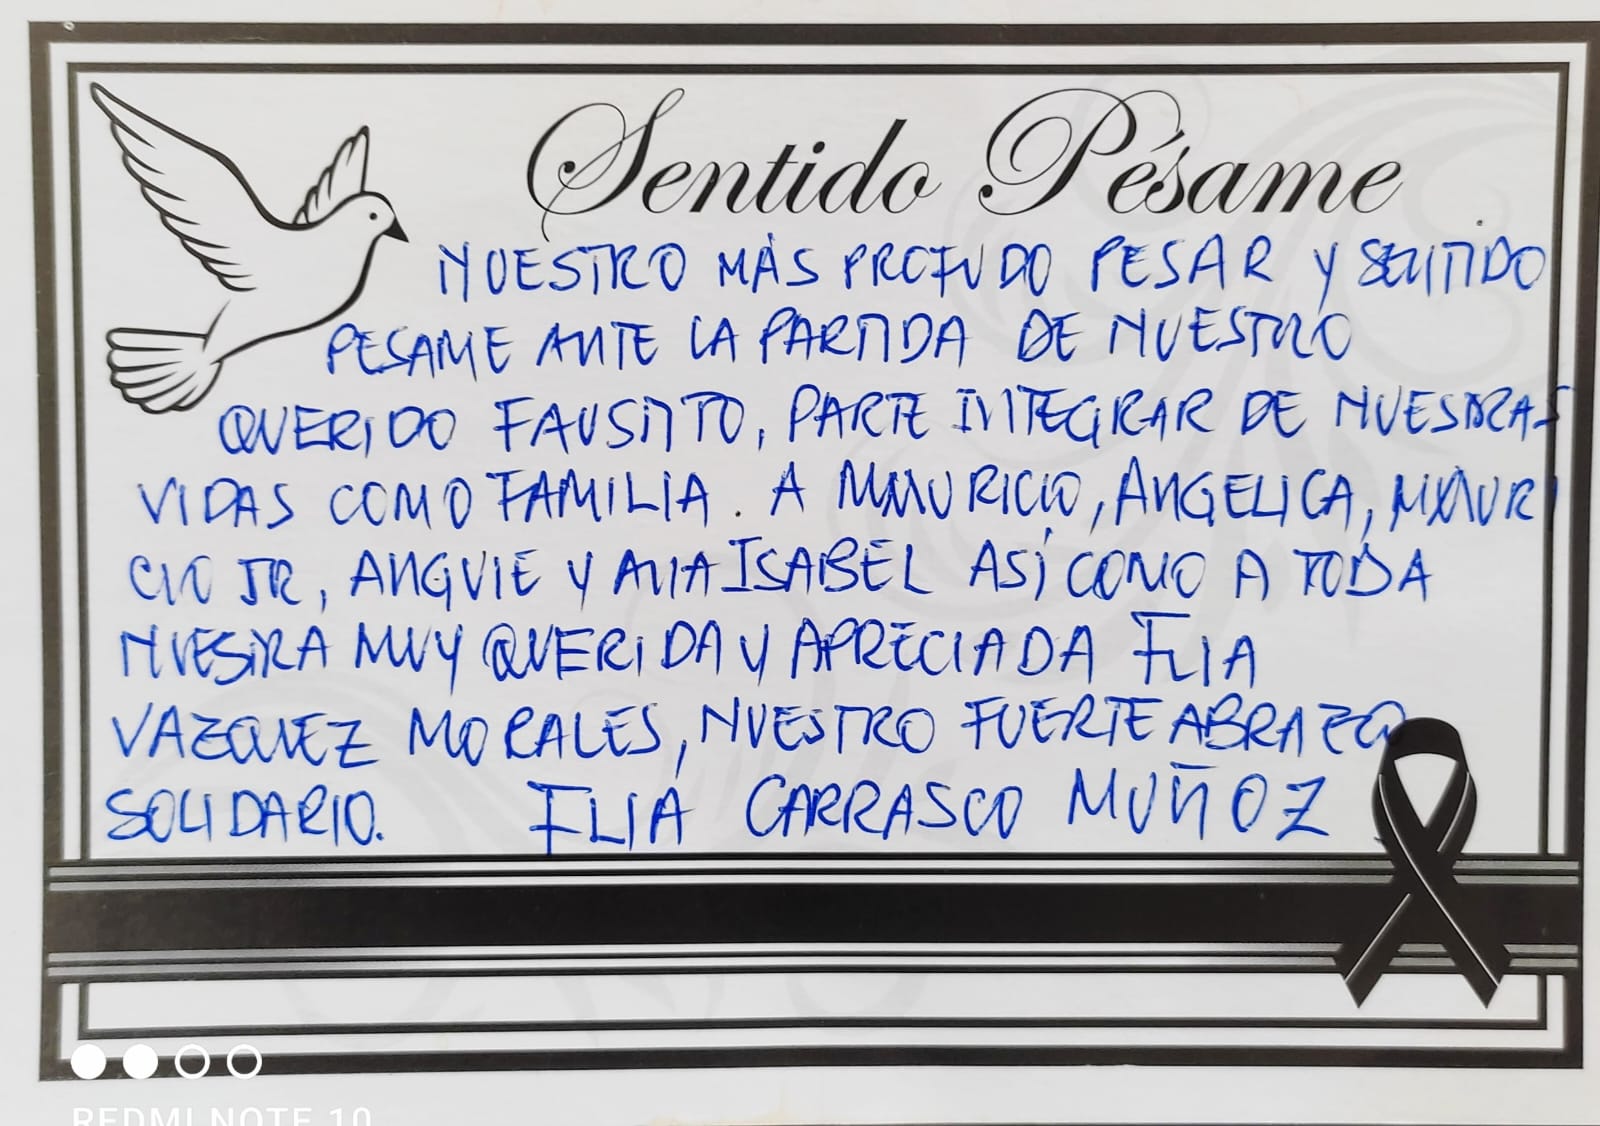 Sentido Pésame
NUESTRO MÁS PROFUDO PESAR Y SENTIDO
PESAME ANTE LA PARTIDA DE NUESTRO
QUERIDO FAUSTITO, PARTE INTEGRAR DE NUESTRAS
VIDAS COMO FAMILIA. A MAURICIO, ANGELICA, MAURI
CIO JR, ANGUIE Y ANA ISABEL ASÍ COMO A TODA
NUESTRA MUY QUERIDA Y APRECIADA FLIA
VAZQUEZ MORALES, NUESTRO FUERTE ABRAZO
SOLIDARIO. FLIA CARRASCO MUÑOZ
REDMI NOTE 10